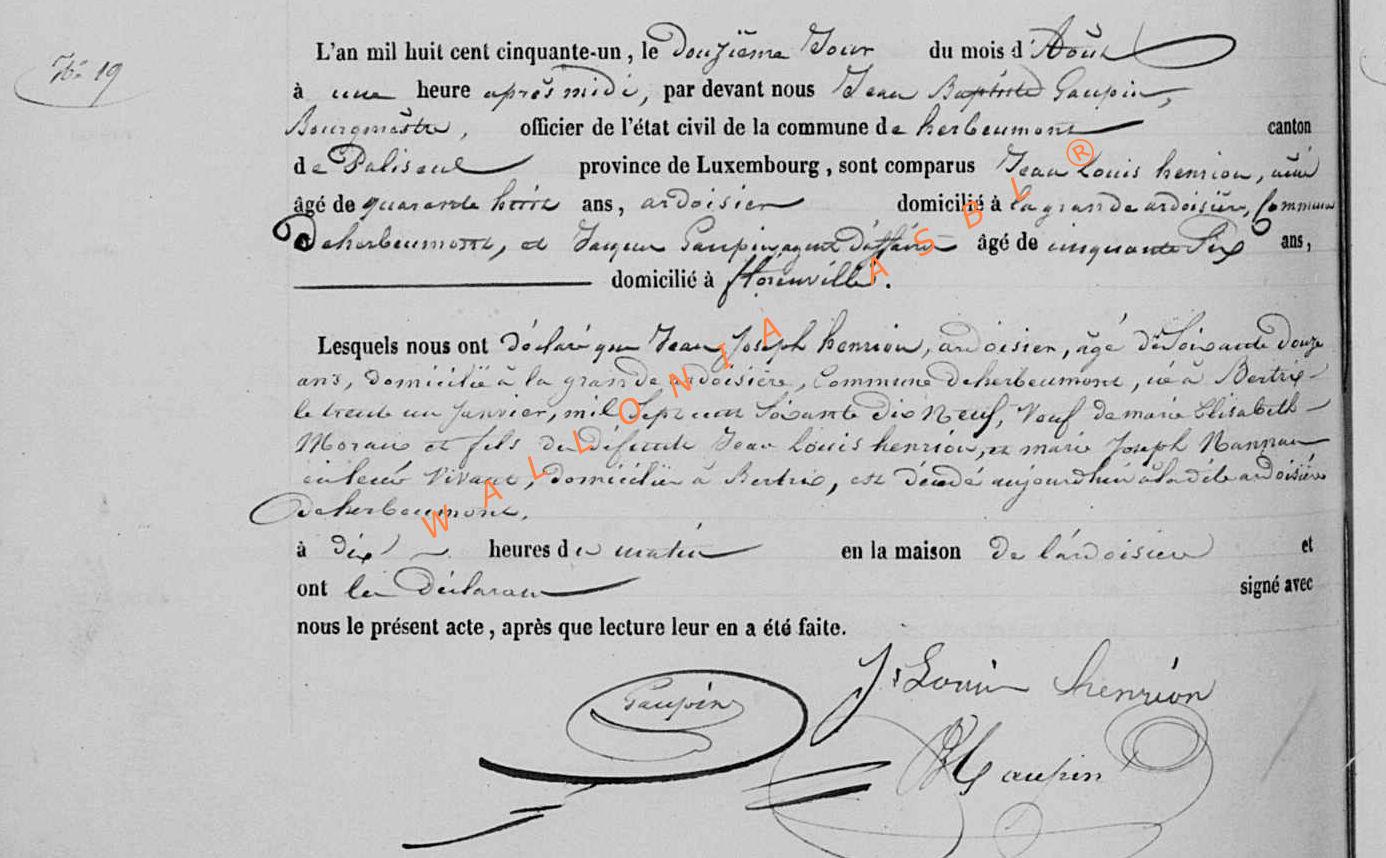 No 19
L'an mil huit cent cinquante-un, le Douzième Jour du mois d'Août
à une heure après midi, par devant nous Jean Baptiste Gaupin,
Bourgmestre, officier de l'état civil de la commune de herbeumont canton
de Paliseul province de Luxembourg, sont comparus Jean Louis henrion,
âgé de quarante huit ans, ardoisier domicilié à la grande ardoisière, Commune
De herbeumont, et Jacques Gaupin, agent d'affaire âgé de cinquante Six ans,
domicilié à florenville.
Lesquels nous ont déclaré que Jean Joseph henrion, ardoisier, âgé de Soixante douze
ans, domicilié à la grande ardoisière, Commune de herbeumont, né à Bertrix
le trente un Janvier, mil Sept cent Soixante dix Neuf, Veuf de marie Elisabeth
et fils de défunts Jean Louis henrion, et marie Joseph
en leur Vivant, domiciliés à Bertrix, est décédé aujourdhui à la dite ardoisière
de herbeumont.
à dix heures du matin en la maison de l'ardoisière et
ont les déclarans signé avec
nous le présent acte, après que lecture leur en a été faite.
Js Louis henrion
Gaupin
Gaupin
WALLONIA ASBL ®